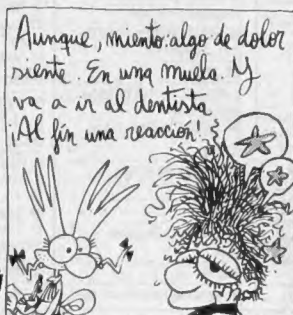 Aunque, miento: algo de dolor
siente. En una muela. Y
va a ir al dentista
¡Al fin una reacción!